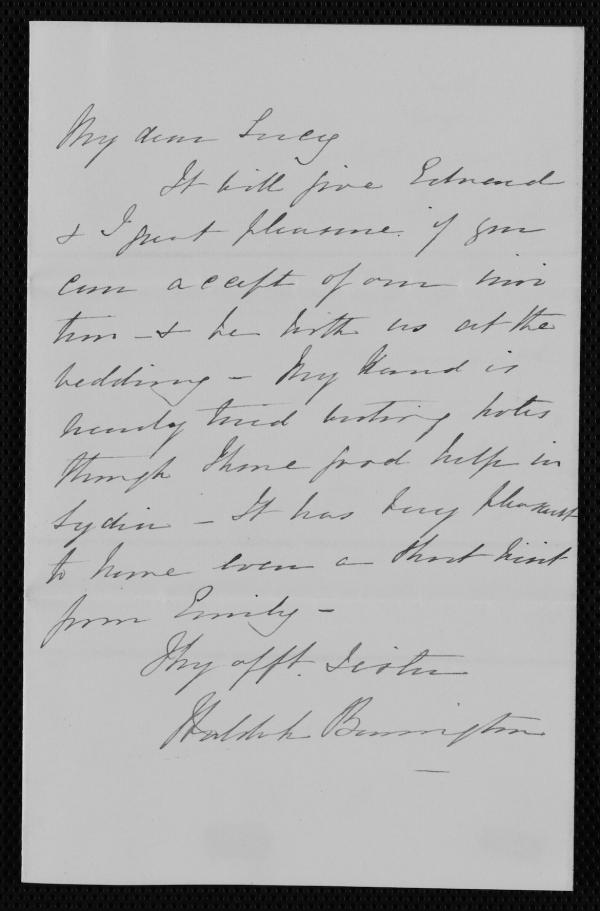 My dear Lucy
It will give Edward
& I great pleasure if you
can accept of our invi
tion - & be with us at the
wedding - My hand is
nearly tired writing notes
though I have good help in
Lydia - It was very pleasant
to have even a short visit
from Emily -
Thy afft. Sister
Huldah Bonington